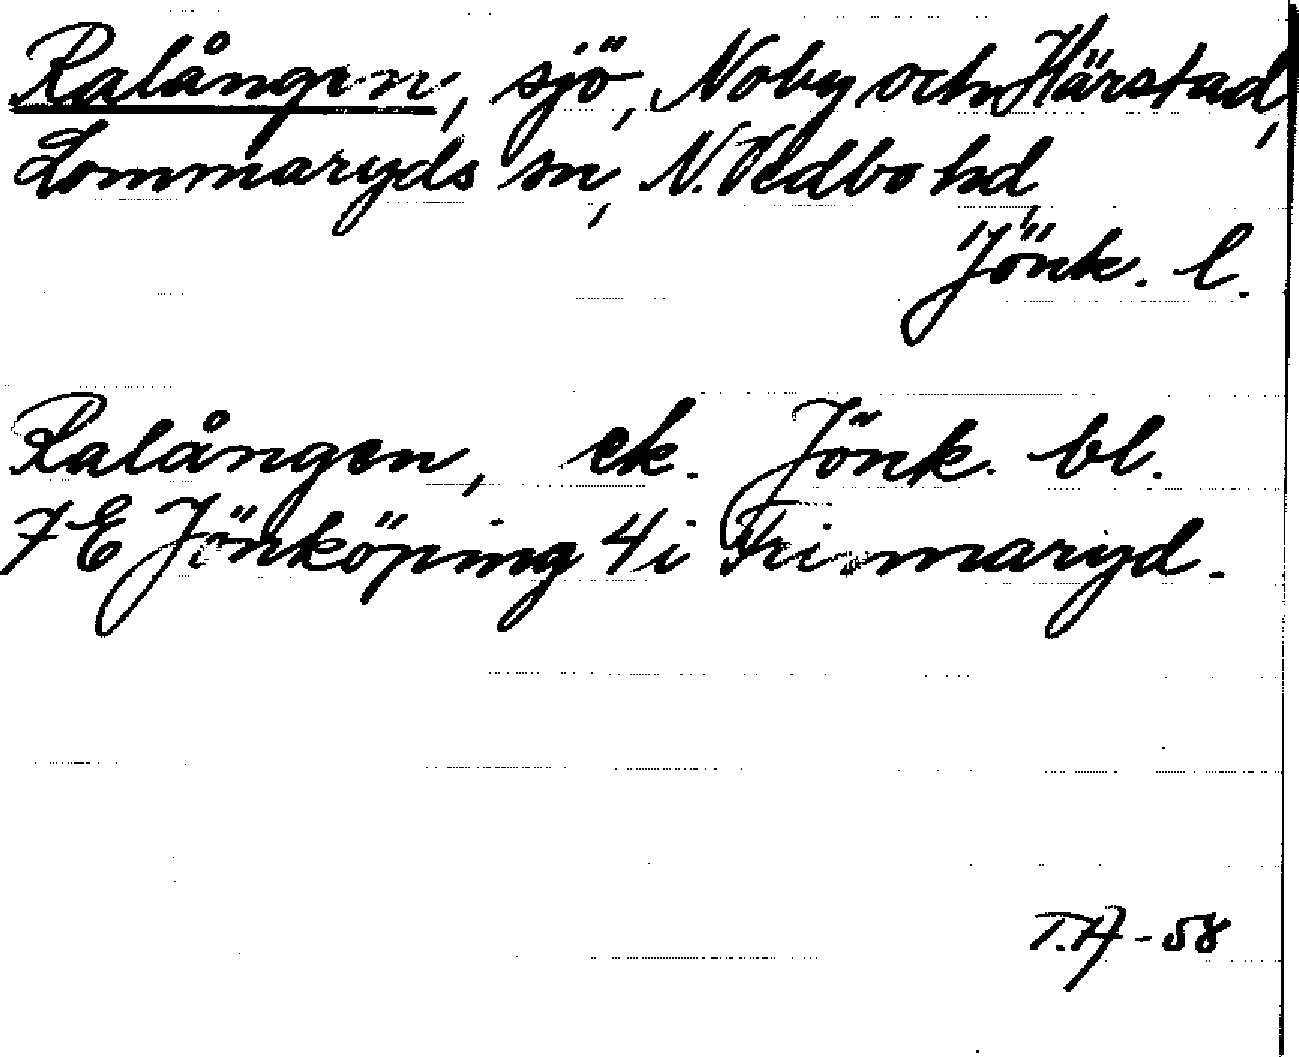 Ralången, sjö, Noby och Härstad,
Lommaryds sn, N. Vedbo hd,
Jönk. l.
Ralången, ek. Jönk. bl.
7 E Jönköping 4 i Frinnaryd.
T.A-58